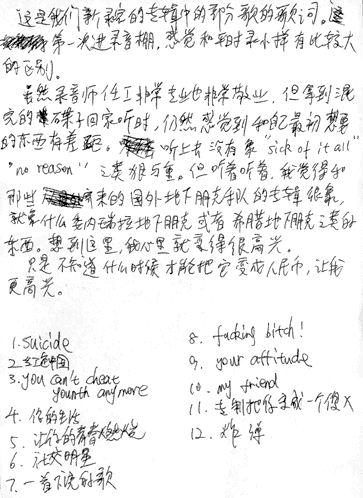 这是我们新录完的专辑中的部分歌的歌词。这
第一次进录音棚，感觉和平时录小样有比较大
的区别。
虽然录音师任工非常专业也非常敬业，但拿到混
完的碟子回家听时，仍然感觉到和自己最初想要
的东西有差距。听上去没有象"sick of it all"
"no reason"之类很有重。但听着听着，我觉得和
那些来的国外地下朋克乐队的专辑很象，
就象什么委内瑞拉地下朋克或者希腊地下朋克之类的
东西。想到这里，我心里就变得很高兴。
只是不知道什么时候才能把它变成人民币，让我
更高兴。
1. suicide
2. 红色中国
3. you can't cheat
youth anymore
4. 你的生活
5. 让你的青春燃烧
6. 社交明星
7. 一首下流的歌
8. fucking bitch!
9. your attitude
10. my friend
11. 专制把你变成一个傻X
12. 炸弹